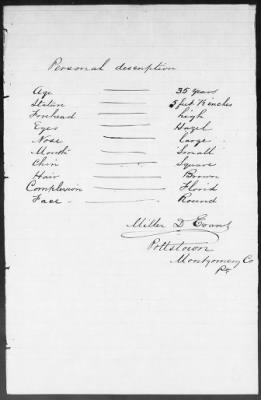 Personal description
Age 35 Years
Stature 5 feet 7 inches
Forehead high
Eyes Hazel
Nose large
Mouth Small
Chin Square
Hair Brown
Complexion Florid
Face Round
Miller D Evans
Pottstown
Montgomery Co
Pa